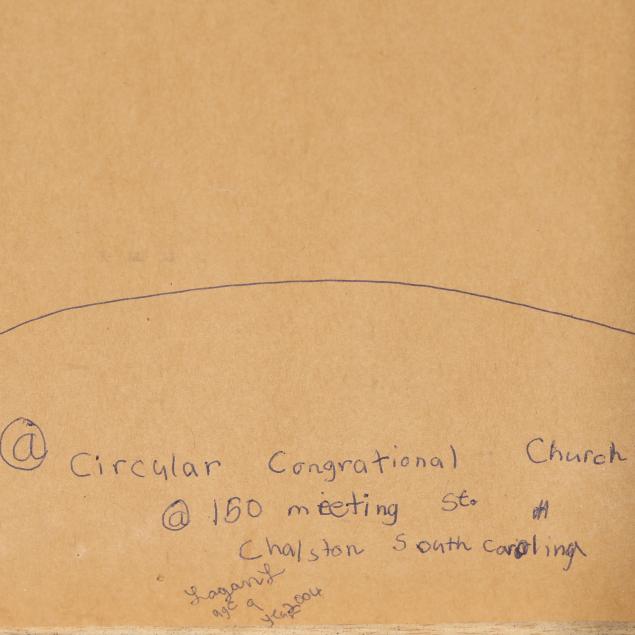 @ Circular Congrational Church
@ 150 meeting St.
Chalston South Carolina
Logan L
age 9
year 2004